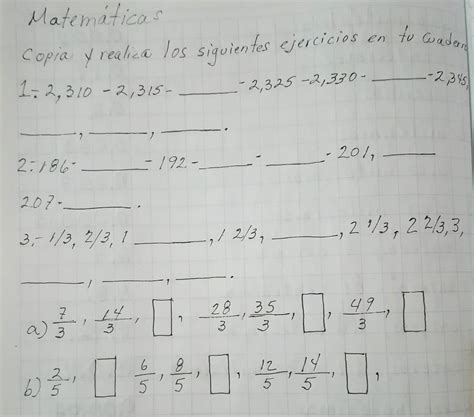 Matemáticas
Copia y realiza los siguientes ejercicios en tu Cuaderno
1-. 2,310 - 2,315 - ______ - 2,325 - 2,330 - ______ - 2,345,
______, ______, ______.
2-. 186 - ______ - 192 - ______ - ______ - 201, ______
207 - ______.
3.- 1/3, 2/3, 1 ______, 1 2/3, ______, 2 1/3, 2 2/3, 3,
______, ______, ______.
a) 7/3, 14/3, □, 28/3, 35/3, □, 49/3, □
b) 2/5, □ 6/5, 8/5, □, 12/5, 14/5, □,